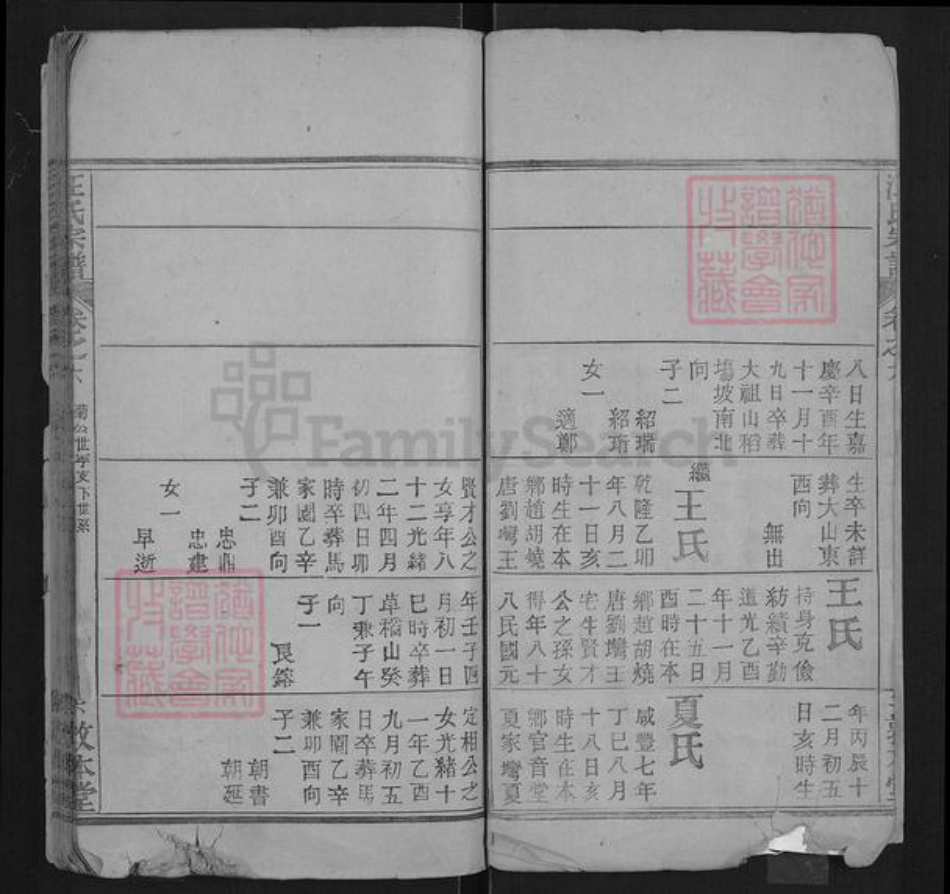 汪氏宗譜
卷之六
八日生嘉
慶辛酉年
十一月十
九日卒葬
大祖山稻
塲坡南北
向
子二
紹瑞
紹珩
女一
適鄭
生卒未詳
葬大山東
西向
無出
繼王氏
乾隆乙卯
年八月二
十一日亥
時生在本
鄉趙胡燒
唐劉灣王
賢才公之
女享年八
十二光緒
二年四月
初四日卯
時卒葬馬
家園乙辛
兼卯酉向
子二
忠鼎
忠建
女一
早逝
王氏
持身克儉
紡績辛勤
道光乙酉
年十一月
二十五日
酉時在本
鄉趙胡燒
唐劉灣王
宅生賢才
公之孫女
得年八十
八民國元
年壬子四
月初一日
巳時卒葬
草稻山癸
丁兼子午
向
子一
良鎔
年丙辰十
二月初五
日亥時生
夏氏
咸豐七年
丁巳八月
十八日亥
時生在本
鄉官音堂
夏家灣夏
定相公之
女光緒十
一年乙酉
九月初五
日卒葬馬
家園乙辛
兼卯酉向
子二
朝書
朝延
汪氏宗譜
卷之六
六
敦本堂
道他家
譜學會
收藏
道他家
譜學會
收藏
FamilySearch